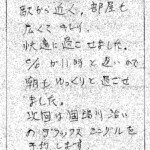 駅から近く、部屋も
広くてキレイ。
快適に過ごせました。
C/Oが11時と遅いので
朝もゆっくりと過ごせ
ました。
次回は国際川沿い
のデラックスシングルを
予約します。